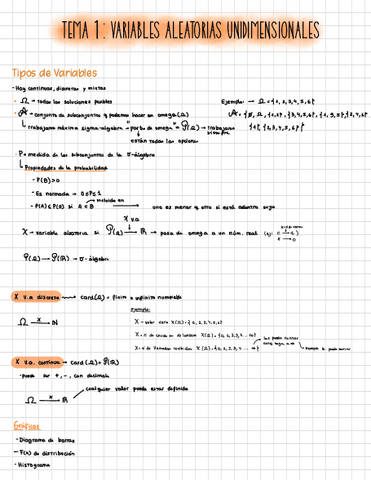 TEMA 1: VARIABLES ALEATORIAS UNIDIMENSIONALES
Tipos de Variables
- Hay continuas, discretas y mixtas
- Ω → todas las soluciones posibles
Ejemplo: → Ω = {1, 2, 3, 4, 5, 6}
- A → conjunto de subconjuntos q podemos hacer en omega (Ω)
↳ trabajamos máxima sigma-álgebra → "partes de omega" = P(Ω) → trabajamos
están todas las opciones
- P = medida de los subconjuntos de la σ-álgebra
↳ Propiedades de la probabilidad
- P(B) > 0
- Es normada → 0 ≤ P ≤ 1
- P(A) ≤ P(B) si A ⊂ B → incluido en
una es menor q otra si está adentro suyo
X v.a
X → variable aleatoria si P(Ω) → ℝ → pasa de omega a un núm. real
P(Ω) → P(ℝ) → σ-álgebra
X v.a discreta → card(Ω) = finito o infinito numerable
Ejemplo:
Ω —X→ ℕ
X v.a. continua → card (Ω) = P(ℝ)
- puede ser +, -, con decimales
cualquier valor puede estar definido
Ω —X→ ℝ
Gráficos
- Diagrama de barras
- F(x) de distribución
- Histograma